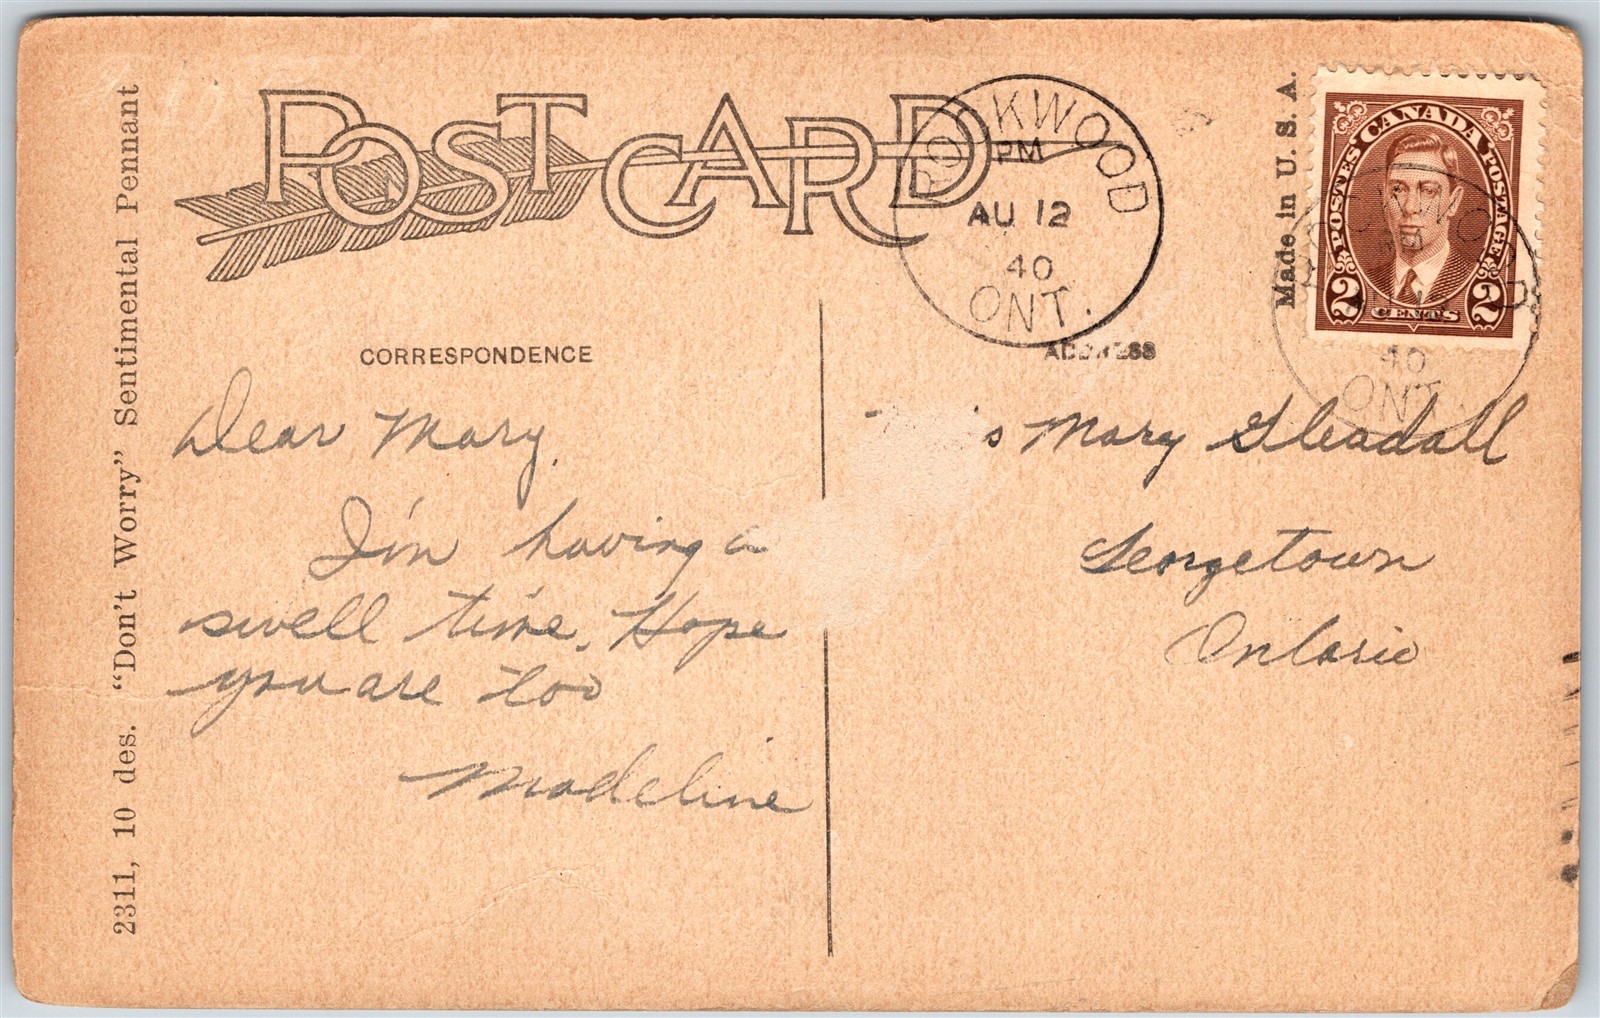 POST CARD
ROCKWOOD
PM
AU 12
40
ONT.
Made in U. S. A.
CANADA
POSTES POSTAGE
2 CENTS 2
40
ONT.
2311, 10 des. "Don't Worry" Sentimental Pennant
CORRESPONDENCE
ADDRESS
Dear Mary,
I'm having a
swell time. Hope
you are too
Madeline
s Mary Gleadall
Georgetown
Ontario